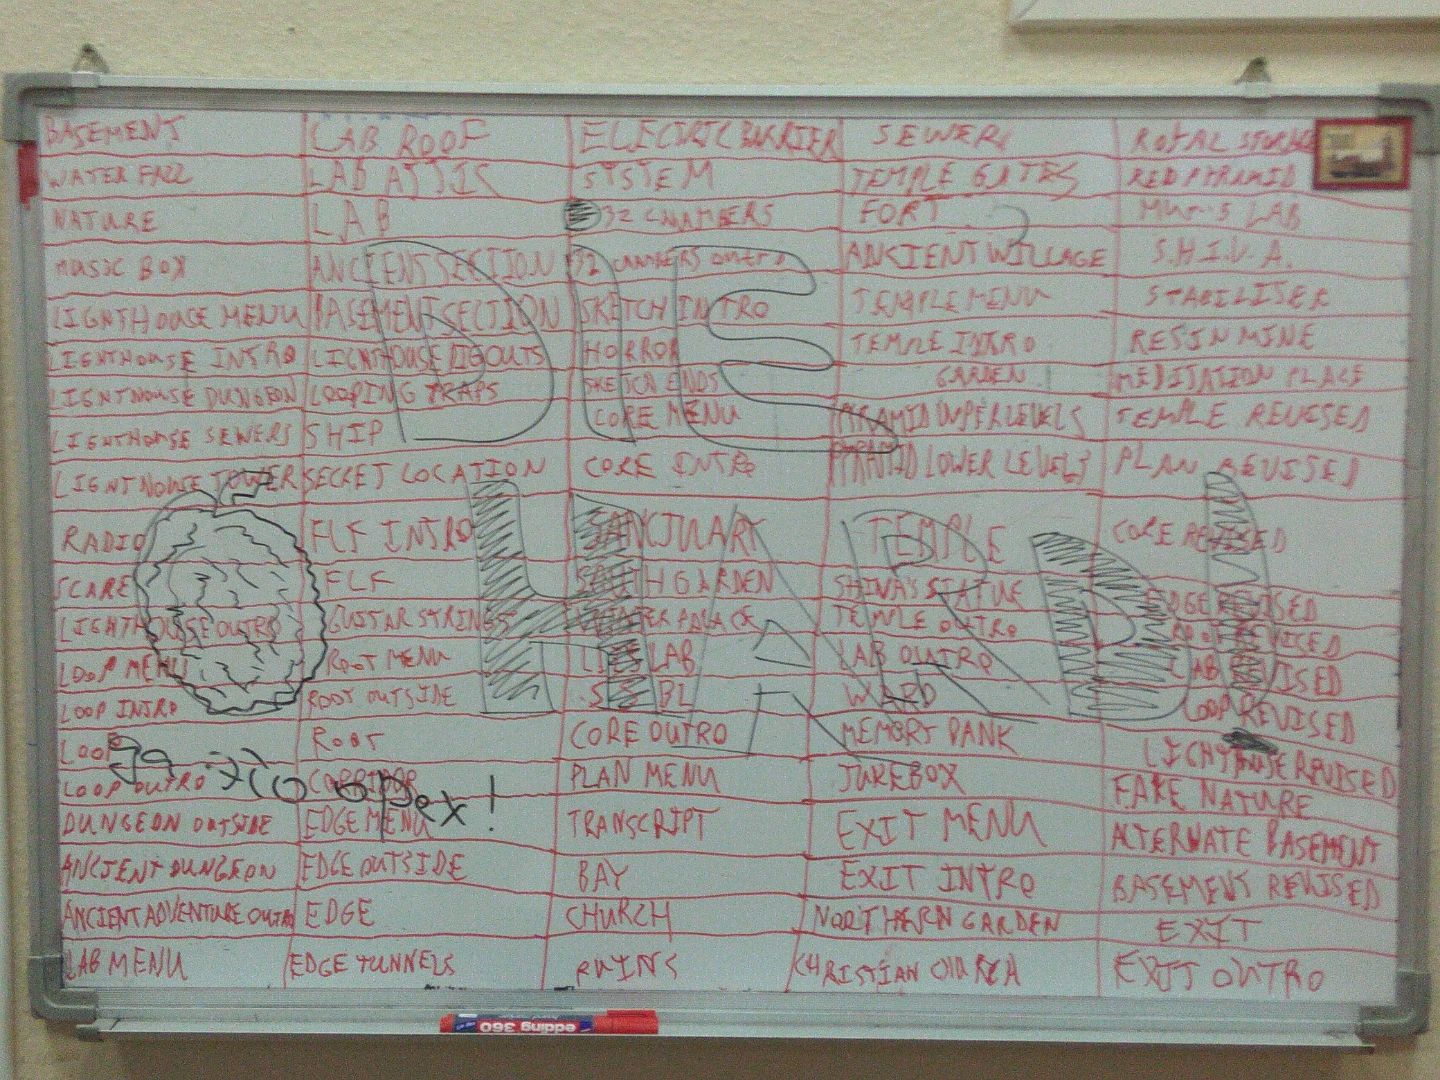 BASEMENT LAB ROOF ELECTRIC BARRIER SEWERS ROYAL STORAGE
WATER FALL LAB ATTIC SYSTEM TEMPLE GATES RED PYRAMID
NATURE LAB 32 CHAMBERS FORT LAB
MUSIC BOX ANCIENT SECTION 32 CAMBERS OUTRO ANCIENT WILLAGE S.H.I.V.A.
LIGHTHOUSE MENU BASEMENT SECTION SKETCH INTRO TEMPLE MENU STABILISER
LIGHTHOUSE INTRO LIGHTHOUSE DIGOUTS HORROR TEMPLE INTRO RESIN MINE
LIGHTHOUSE DUNGEON LOOPING TRAPS SKETCH ENDS GARDEN MEDITATION PLACE
LIGHTHOUSE SEWERS SHIP CORE MENU PYRAMID UPPER LEVELS TEMPLE REVISED
LIGHTHOUSE TOWER SECRET LOCATION CORE INTRO PYRAMID LOWER LEVELS PLAN REVISED
RADIO ELF INTRO SANCTUARY TEMPLE CORE REVISED
SCARE ELF SOUTH GARDEN SHIVA'S STATUE EDGE REVISED
LIGHTHOUSE OUTRO GUITAR STRINGS WINTER PALACE TEMPLE OUTRO ROOT REVISED
LOOP MENU ROOT MENU LAB LAB OUTRO LAB REVISED
LOOP INTRO ROOT OUTSIDE WARD LOOP REVISED
LOOP ROOT CORE OUTRO MEMORY BANK LIGHTHOUSE REVISED
LOOP OUTRO CORRIDOR PLAN MENU JUKEBOX FAKE NATURE
DUNGEON OUTSIDE EDGE MENU TRANSCRIPT EXIT MENU ALTERNATE BASEMENT
ANCIENT DUNGEON EDGE OUTSIDE BAY EXIT INTRO BASEMENT REVISED
ANCIENT ADVENTURE OUTRO EDGE CHURCH NORTHERN GARDEN EXIT
LAB MENU EDGE TUNNELS RUINS CHRISTIAN CHURCH EXIT OUTRO
DIE
HARD!
орех!
edding 360